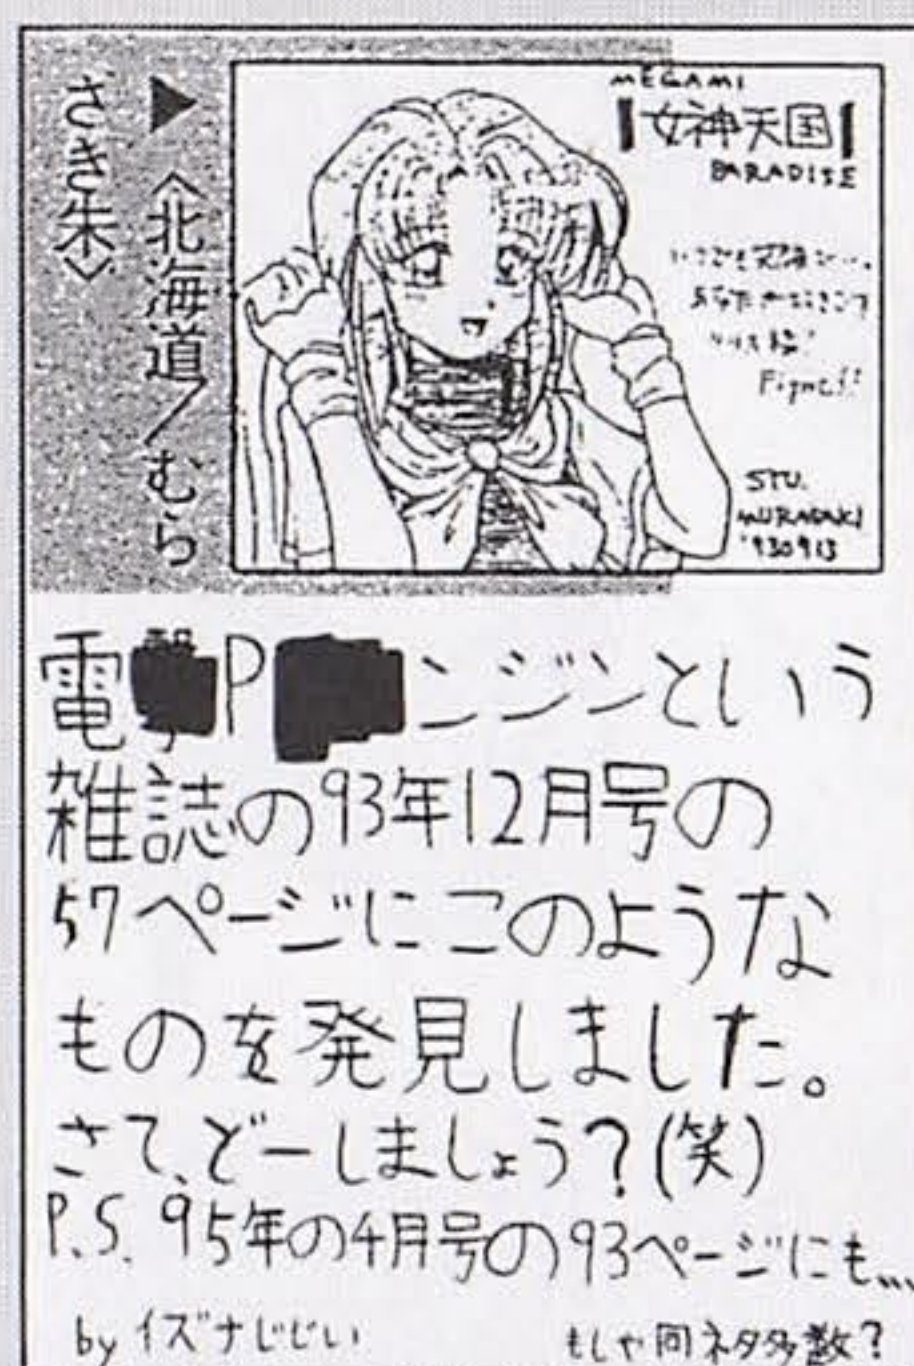 ▶〈北海道/むら
さき朱〉
MEGAMI
【女神天国】
PARADISE
いつでも元気で…。
Fight!!
STU.
MURASAKI
'930913
電 P ンジンという
雑誌の93年12月号の
57ページにこのような
ものを発見しました。
さて、どーしましょう?(笑)
P.S. 95年の4月号の93ページにも...
by イズナじじい
もしや同ネタ多数?